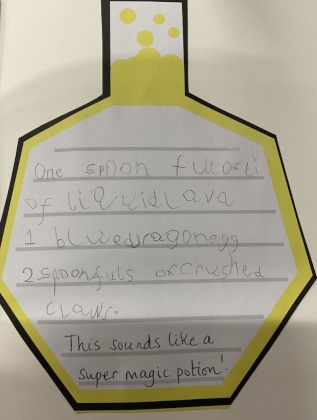 One spoon fulof
of liquidLava
1 bluedragonegg
2 spoonfuls ofcrushed
claws.
This sounds like a
super magic potion!